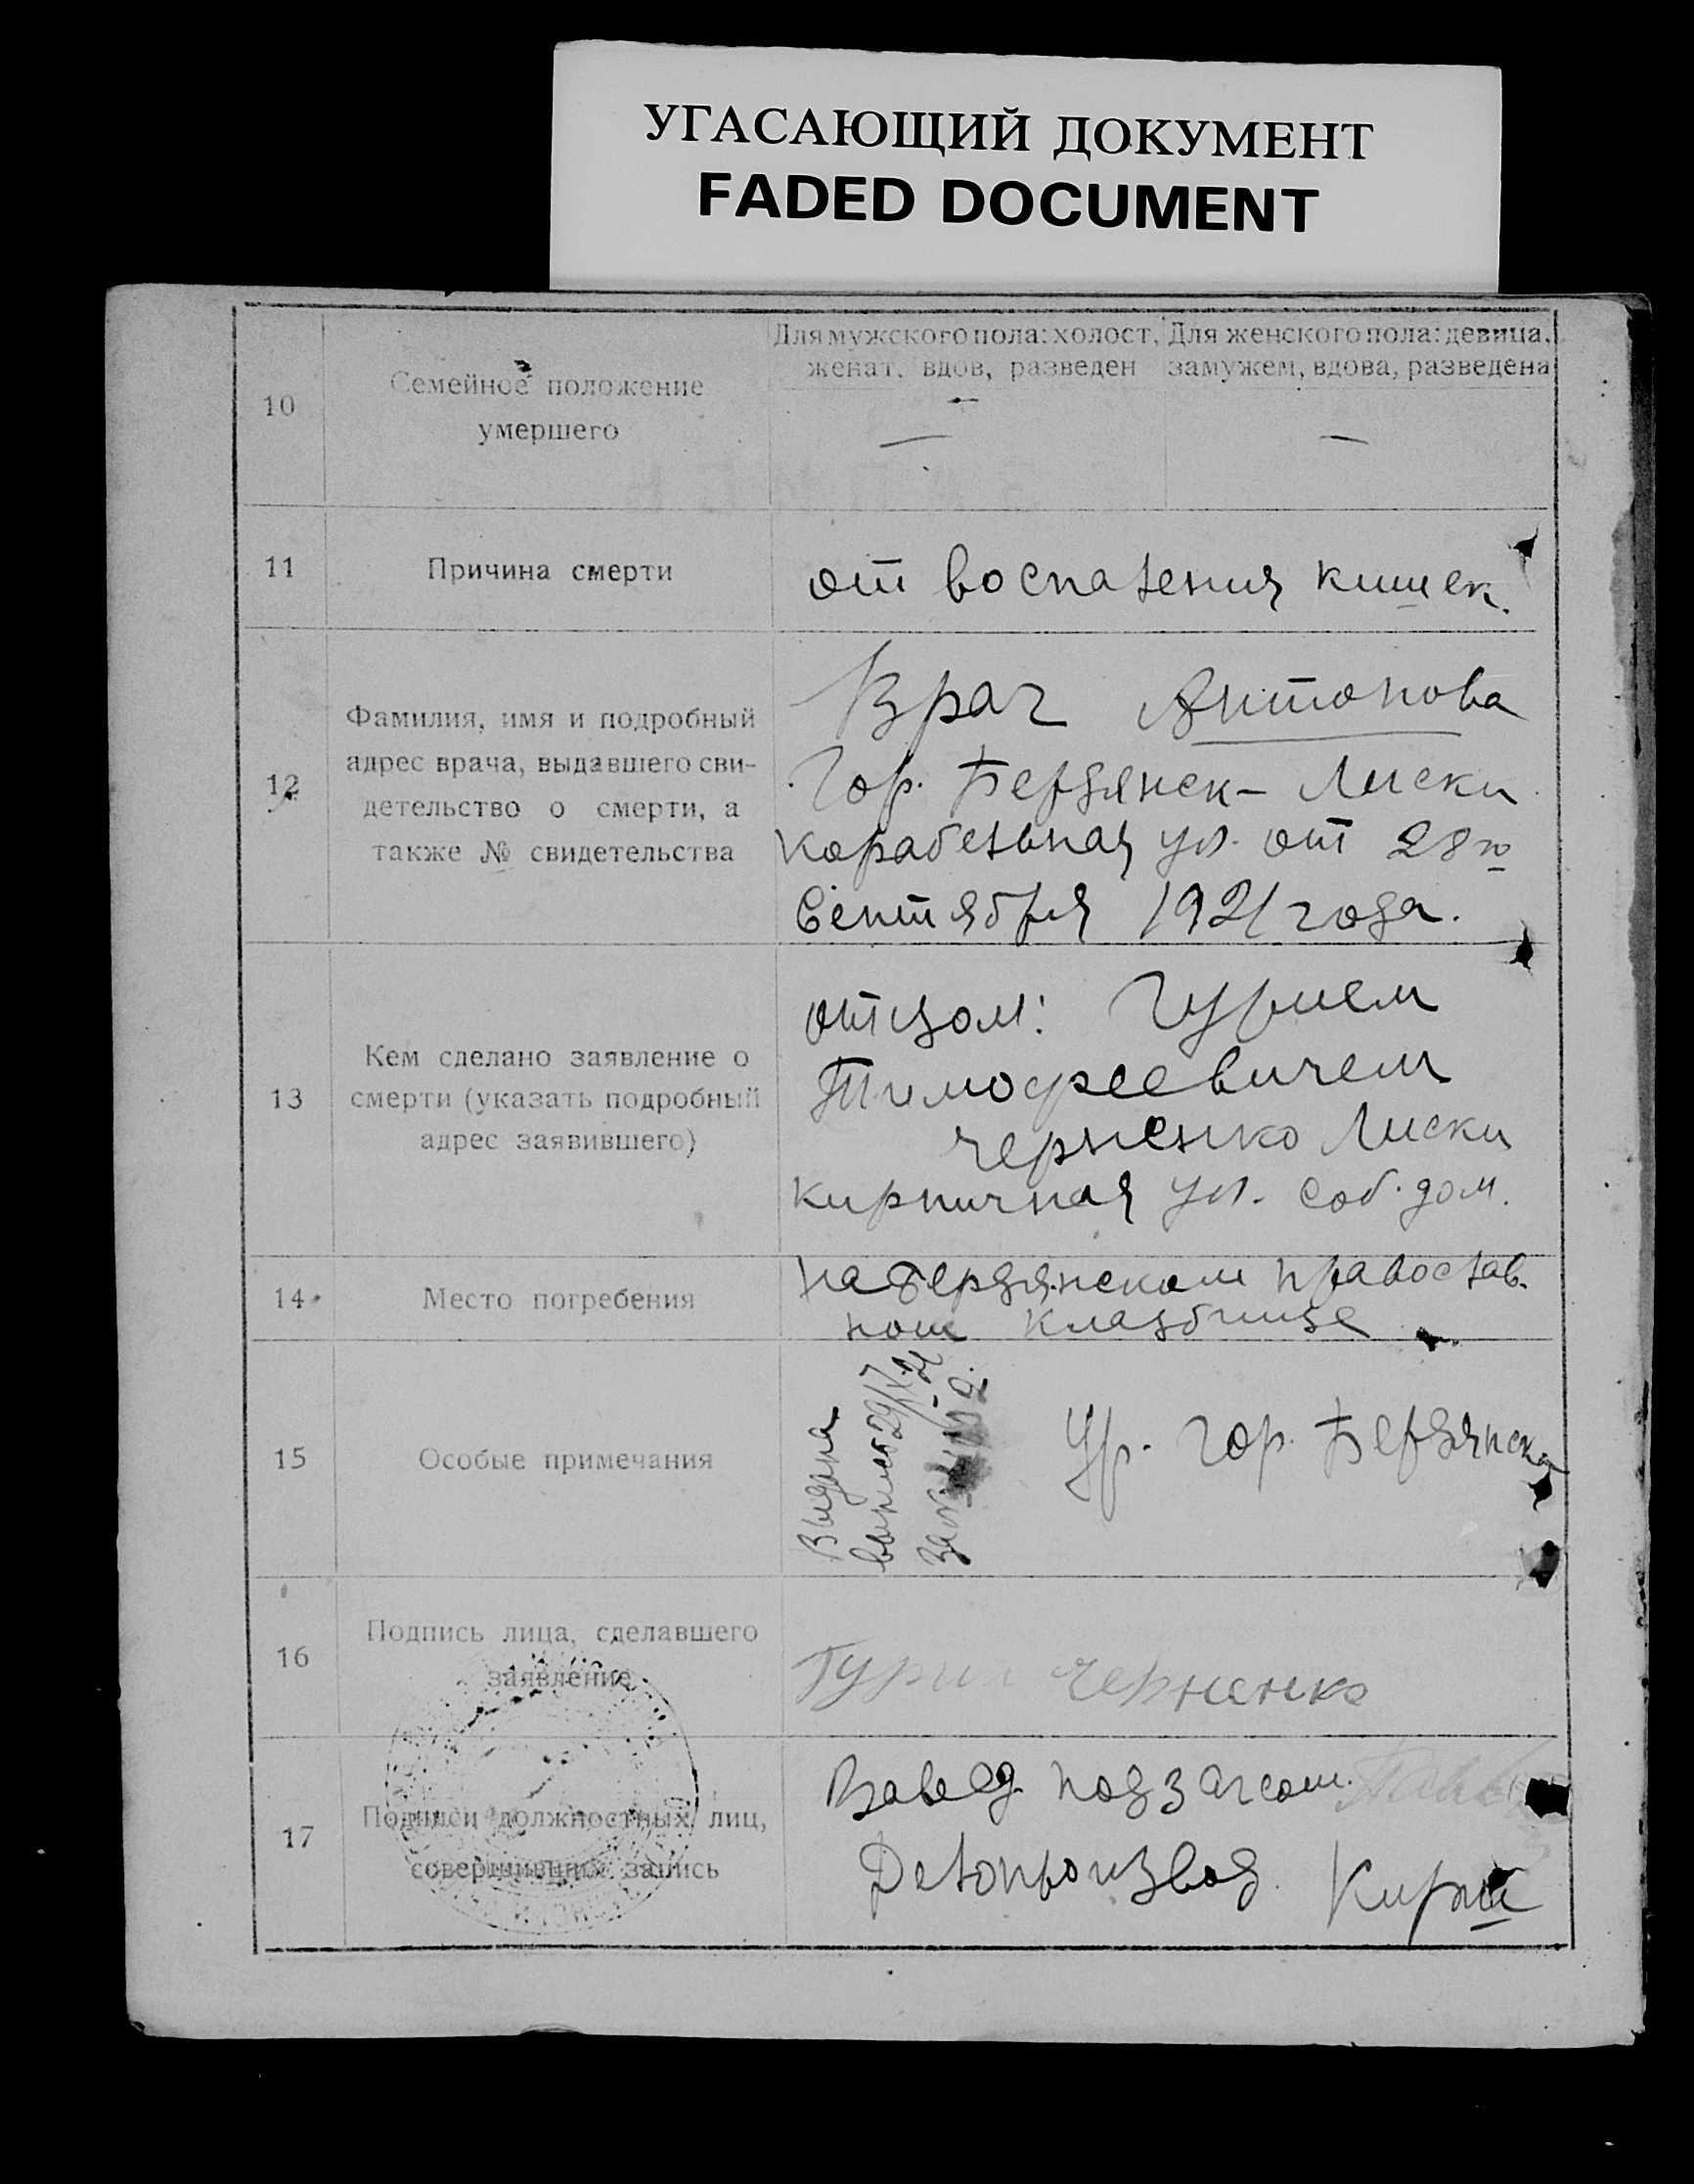 УГАСАЮЩИЙ ДОКУМЕНТ
FADED DOCUMENT
10
Семейное положение
умершего
Для мужского пола: холост,
женат, вдов, разведен
—
Для женского пола: девица,
замужем, вдова, разведена
—
11
Причина смерти
от воспаления кишек.
12
Фамилия, имя и подробный
адрес врача, выдавшего сви-
детельство о смерти, а
также № свидетельства
Врач Антонова
Гор. Бердянск – Лиски
Корабельная ул. от 28го
Сентября 1921 года.
13
Кем сделано заявление о
смерти (указать подробный
адрес заявившего)
отцом: Гурием
Тимофеевичем
Черненко Лиски
Кирпичная ул. соб. дом.
14
Место погребения
на Бердянском православ-
ном кладбище
15
Особые примечания
Выдана
29/IX 21
за №
Ур. гор. Бердянска
16
Подпись лица, сделавшего
заявление
Гурий Черненко
17
Подписи должностных лиц,
совершивших запись
Завед. подзагсом.
Делопроизвод.